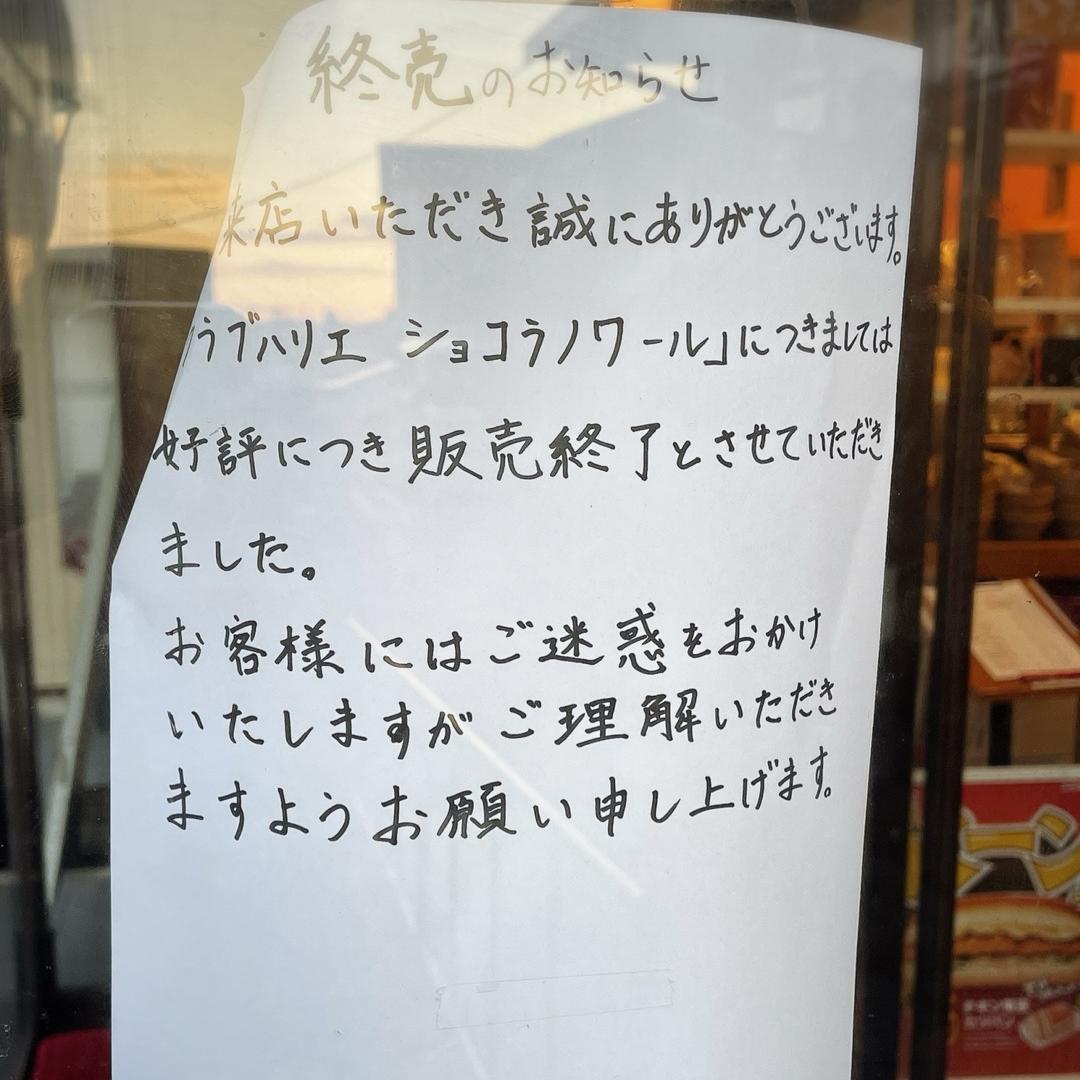 終売のお知らせ
来店いただき誠にありがとうございます。
ラブハリエ ショコラノワール」につきましては
好評につき販売終了とさせていただき
ました。
お客様にはご迷惑をおかけ
いたしますがご理解いただき
ますようお願い申し上げます。